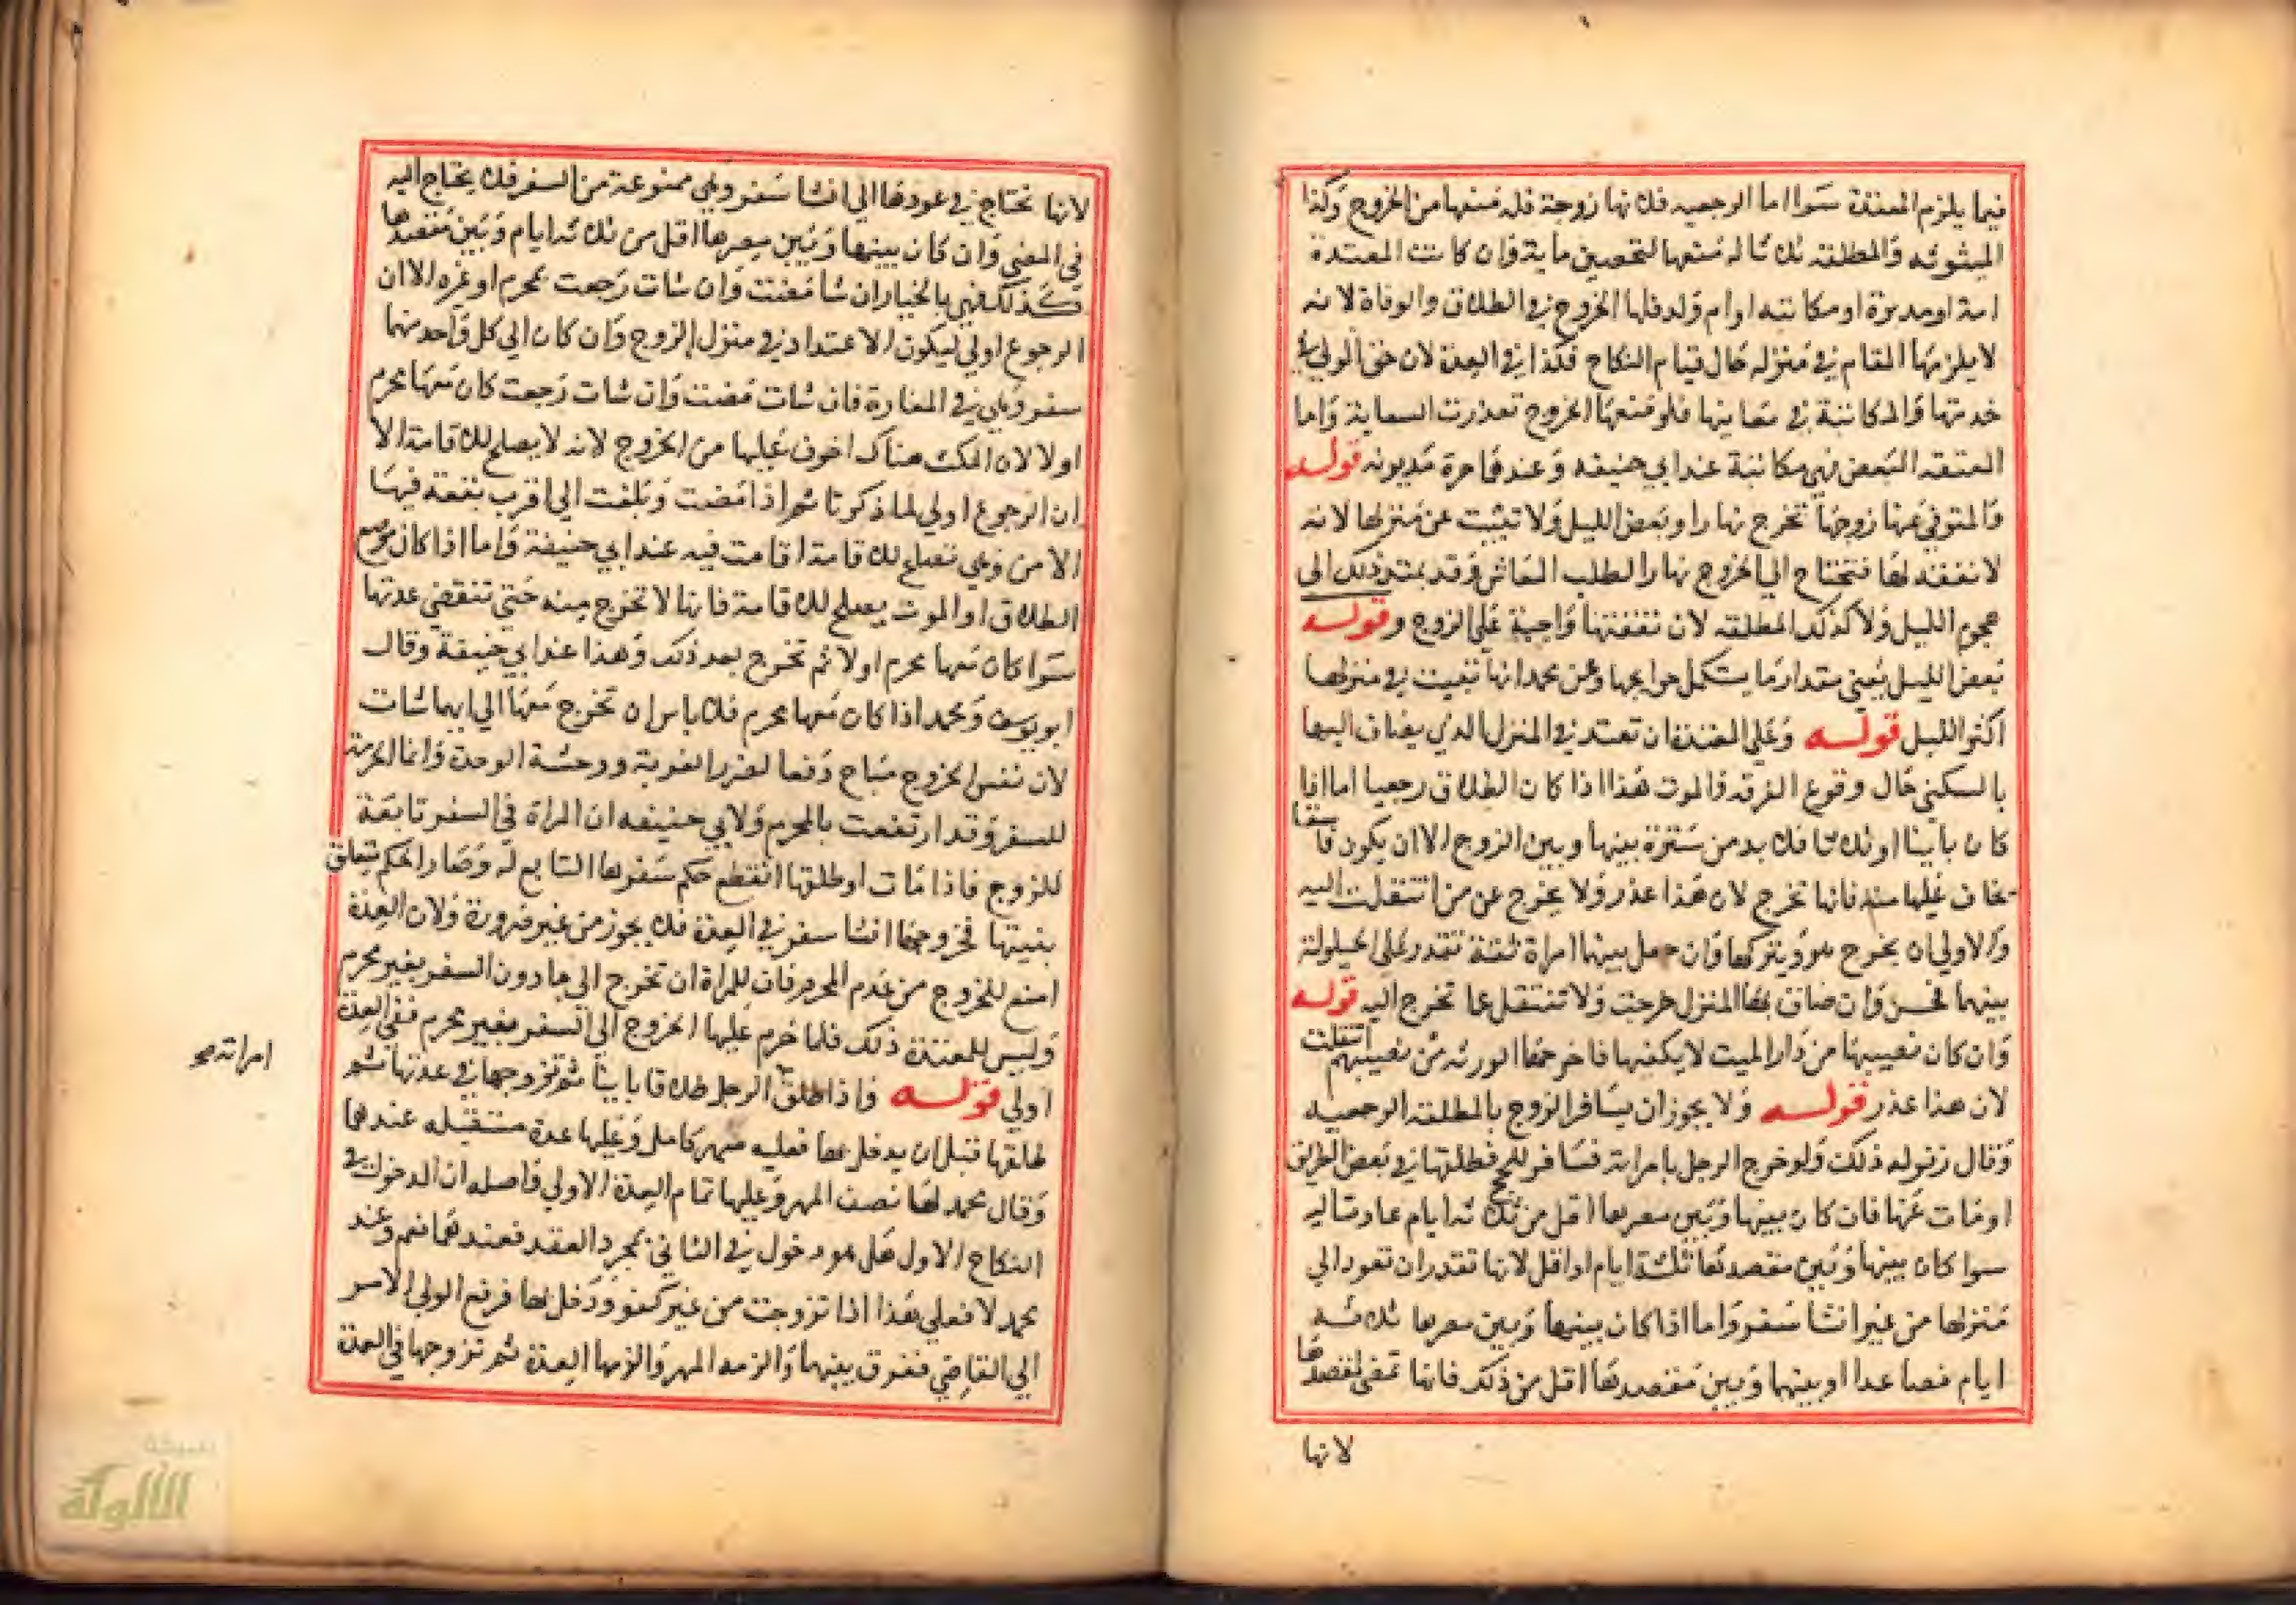 فيما يلزم المعتدة سوا اما الرجعيه فلانها زوجة فله منعها من الخروج وكذا
المبتوته والمطلقه ثلاثا له منعها لتحصين مايه وان كانت المعتدة
امة او مدبرة او مكاتبه او ام ولد فلها الخروج في الطلاق والوفاة لانه
لا يلزمها المقام في منزله حال قيام النكاح فكذا في العدة لان حق المولى في
خدمتها والمكاتبة في سعايتها فلو منعها الخروج تعذرت السعاية واما
المعتقه البعض فهي مكاتبة عند ابي حنيفه وعندهما حرة مديونه قوله
والمتوفي عنها زوجها تخرج نهارا وبعض الليل ولا تبيت عن منزلها لانه
لا نفقة لها فتحتاج الي الخروج نهارا لطلب المعاش وقد يمتد ذلك الى
هجوم الليل ولا كذلك المطلقه لان نفقتها واجبة علي الزوج وقوله
بعض الليل يعني مقدار ما يستكمل حوايجها وعن محمد انها تبيت في منزلها
اكثر الليل قوله وعلي المعتدة ان تعتد في المنزل الذي يضاف اليها
بالسكني حال وقوع الفرقه والموت هذا اذا كان الطلاق رجعيا اما اذا
كان باينا او ثلاثا فلا بد من سترة بينها وبين الزوج الا ان يكون فاسقا
يخاف عليها منه فانها تخرج لان هذا عذر ولا يخرج عن من انتقلت اليه
والاولي ان يخرج هو ويتركها وان جعل بينهما امراة ثقة تقدر علي الحيلولة
بينهما فحسن وان ضاق بهما المنزل خرجت ولا تنتقل عما تخرج اليه قوله
وان كان نصيبها من دار الميت لا يكفيها فاخرجها الورثه من نصيبهم انتقلت
لان هذا عذر قوله ولا يجوز ان يسافر الزوج بالمطلقه الرجعيه
وقال زفر له ذلك ولو خرج الرجل بامراته مسافر للحج فطلقها في بعض الطريق
او مات عنها فان كان بينها وبين مصرها اقل من ثلاثه ايام عادت اليه
سوا كان بينها وبين مقصدها ثلاثة ايام او اقل لانها تقدر ان تعود الي
منزلها من غير انشا سفر واما اذا كان بينها وبين مصرها ثلاثه
ايام فصاعدا او بينها وبين مقصدها اقل من ذلك فانها تمضي لمقصدها
لانها
لانها تحتاج في عودها الي انشا سفر وهي ممنوعة من السفر فلا يحتاج اليه
في المضي وان كان بينها وبين مصرها اقل من ثلاثه ايام وبين مقصدها
كذلك فهي بالخيار ان شا مضت وان شات رجعت بمحرم او غيره الا ان
الرجوع اولي ليكون الاعتداد في منزل الزوج وان كان الي كل واحد منهما
سفر وهي في المفازة فان شات مضت وان شات رجعت كان معها محرم
اولا لان المكث هناك اخوف عليها من الخروج لانه لا يصلح للاقامة الا
ان الرجوع اولي لما ذكرنا ثم اذا مضت وبلغت الي اقرب بقعة فيها
الامن وهي تصلح للاقامة اقامت فيه عند ابي حنيفة واما اذا كان موضع
الطلاق او الموت يصلح للاقامة فانها لا تخرج منه حتي تنقضي عدتها
سوا كان معها محرم اولا ثم تخرج بعد ذلك وهذا عند ابي حنيفة وقال
ابو يوسف ومحمد اذا كان معها محرم فلا باس ان تخرج معها الي ايهما شات
لان نفس الخروج مباح دفعا لضرر الغربة ووحشة الوحدة وانما الحرمة
للسفر وقد ارتفعت بالمحرم ولابي حنيفه ان المراة في السفر تابعة
للزوج فاذا مات او طلقها انقطع حكم سفرها التابع له وصار الحكم يتعلق
بنيتها فخروجها انشا سفر في العدة فلا يجوز من غير ضرورة ولان العدة
امنع للخروج من عدم المحرم فان للمراة ان تخرج الي ما دون السفر بغير محرم
وليس للمعتدة ذلك فلما حرم عليها الخروج الي السفر بغير محرم ففي العدة
اولي قوله واذا طلق الرجل طلاقا باينا ثم تزوجها في عدتها ثم
امراته صح
طلقها قبل ان يدخل بها فعليه مهر كامل وعليها عدة مستقبله عندهما
وقال محمد لها نصف المهر وعليها تمام العدة الاولي واصله ان الدخول في
النكاح الاول هل هو دخول في الثاني بمجرد العقد فعندهما نعم وعند
محمد لا فعلي هذا اذا تزوجت من غير كفو ودخل بها فرفع الولي الامر
الي القاضي ففرق بينهما والزمه المهر والزمها العدة ثم تزوجها في العدة
شبكة
الألوكة